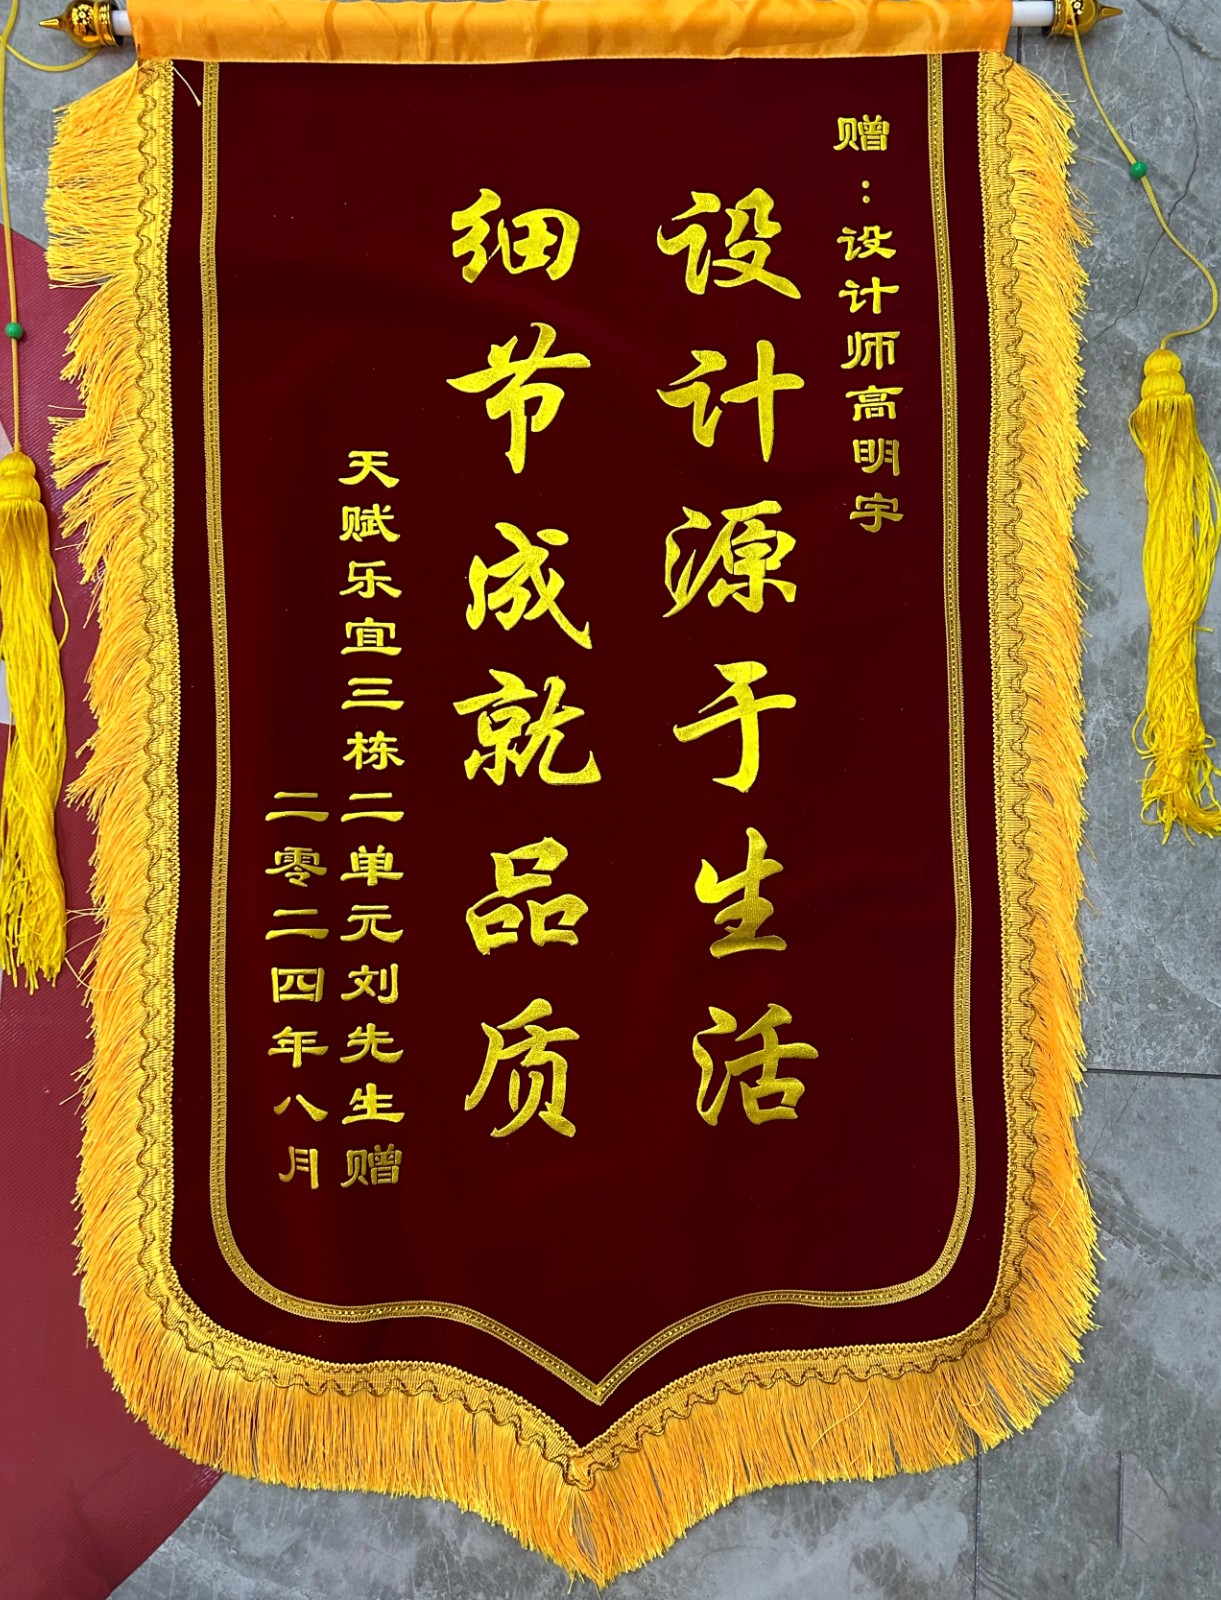 赠：设计师高明宇
设计源于生活
细节成就品质
天赋乐宜三栋二单元刘先生赠
二零二四年八月